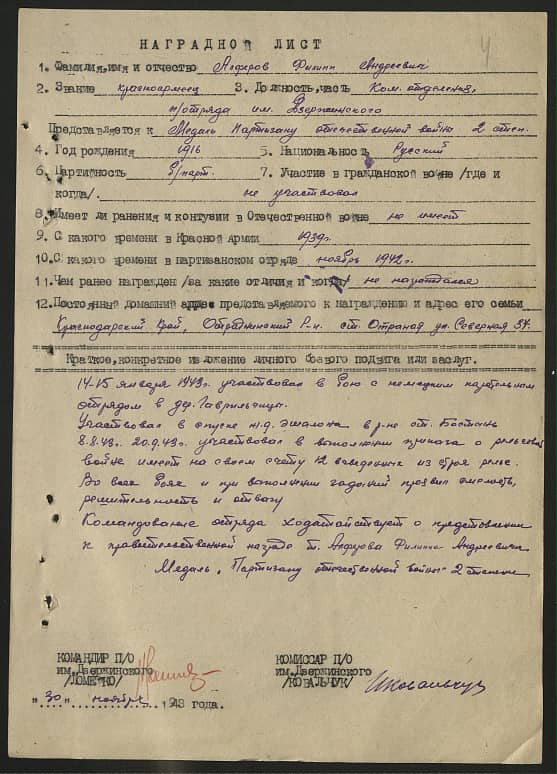 4
НАГРАДНОЙ ЛИСТ
1. Фамилия,имя и отчество Алферов Филипп Андреевич
2. Звание красноармеец 3. Должность,часть Ком. отделения,
п/отряда им. Дзержинского
Представляется к Медаль Партизану отечественной войны 2 степ.
4. Год рождения 1916 5. Национальность Русский
6. Партийность б/парт. 7. Участие в Гражданской войне /где и
когда/ не участвовал
8. Имеет ли ранения и контузии в Отечественной войне не имеет
9. С какого времени в Красной Армии 1939г.
10. С какого времени в партизанском отряде ноябрь 1942г.
11. Чем ранее награжден /за какие отличия и когда/ не награждался
12. Постоянный домашний адрес представляемого к награждению и адрес его семьи
Краснодарский Край, Отрадненский Р-н. ст. Отрадная ул. Северная 37.
Краткое,конкретное изложение личного боевого подвига или заслуг.
14-15 января 1943г. участвовал в бою с немецким карательным
отрядом в дер. Гаврильчицы.
Участвовал в спуске ж.д. эшалона в р-не ст. Бостынь
8.8.43г. 20.9.43г. участвовал в выполнении приказа о рельсовой
войне имеет на своем счету 12 выведенных из строя рельс.
Во всех боях и при выполнении заданий проявил смелость,
решительность и отвагу
Командование отряда ходатайствует о представлении
к правительственной награде т. Алферова Филиппа Андреевича
Медаль "Партизану отечественной войны" 2 степени
КОМАНДИР П/О КОМИССАР П/О
им.Дзержинского им.Дзержинского
/ЛОМЕТКО/ /КОВАЛЬЧУК/ Ковальчук
"30" ноября 1943 года.